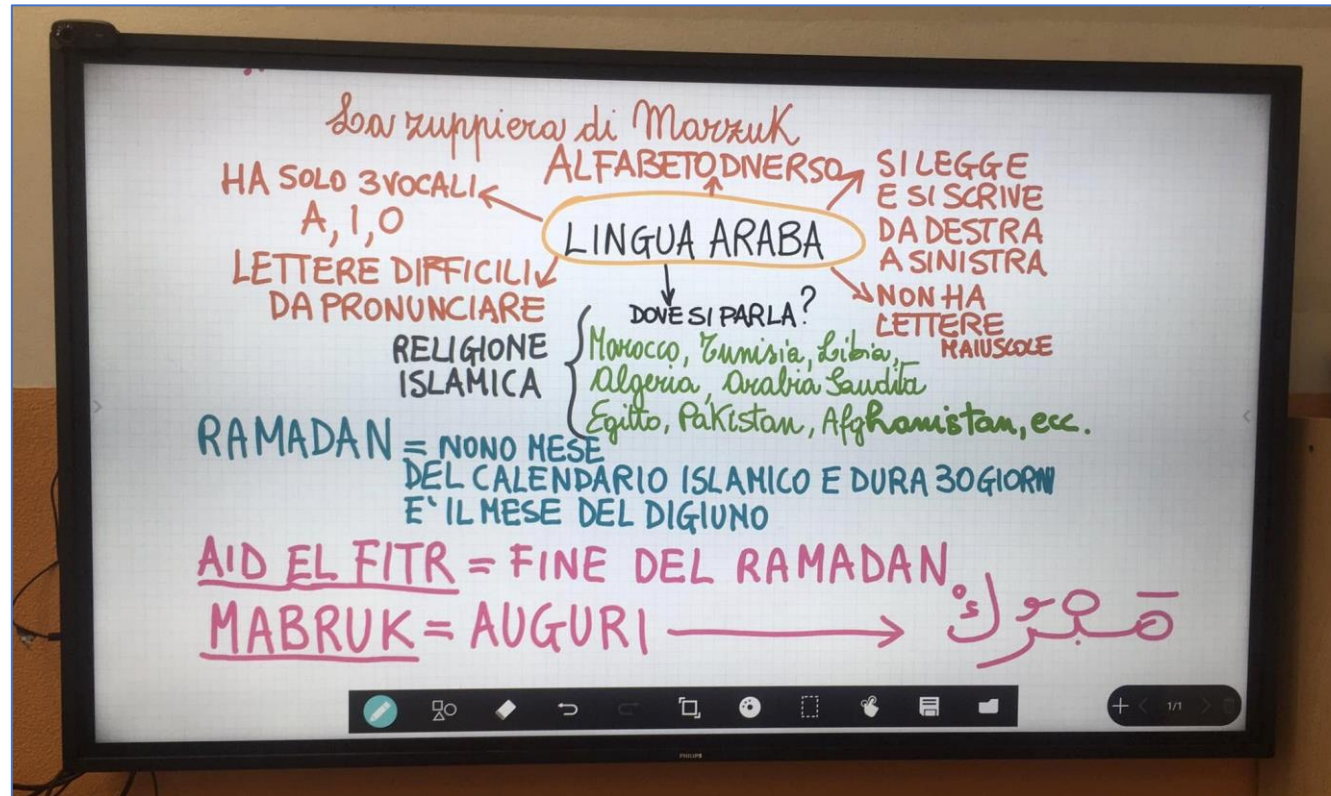 La zuppiera di Marzuk
HA SOLO 3 VOCALI
A, I, O
ALFABETO DIVERSO
SI LEGGE
E SI SCRIVE
DA DESTRA
A SINISTRA
LINGUA ARABA
LETTERE DIFFICILI
DA PRONUNCIARE
NON HA
LETTERE
MAIUSCOLE
DOVE SI PARLA?
RELIGIONE
ISLAMICA
Marocco, Tunisia, Libia,
Algeria, Arabia Saudita
Egitto, Pakistan, Afghanistan, ecc.
RAMADAN = NONO MESE
DEL CALENDARIO ISLAMICO E DURA 30 GIORNI
E' IL MESE DEL DIGIUNO
AID EL FITR = FINE DEL RAMADAN
MABRUK = AUGURI
مَبْرُوكْ
1/1
PHILIPS